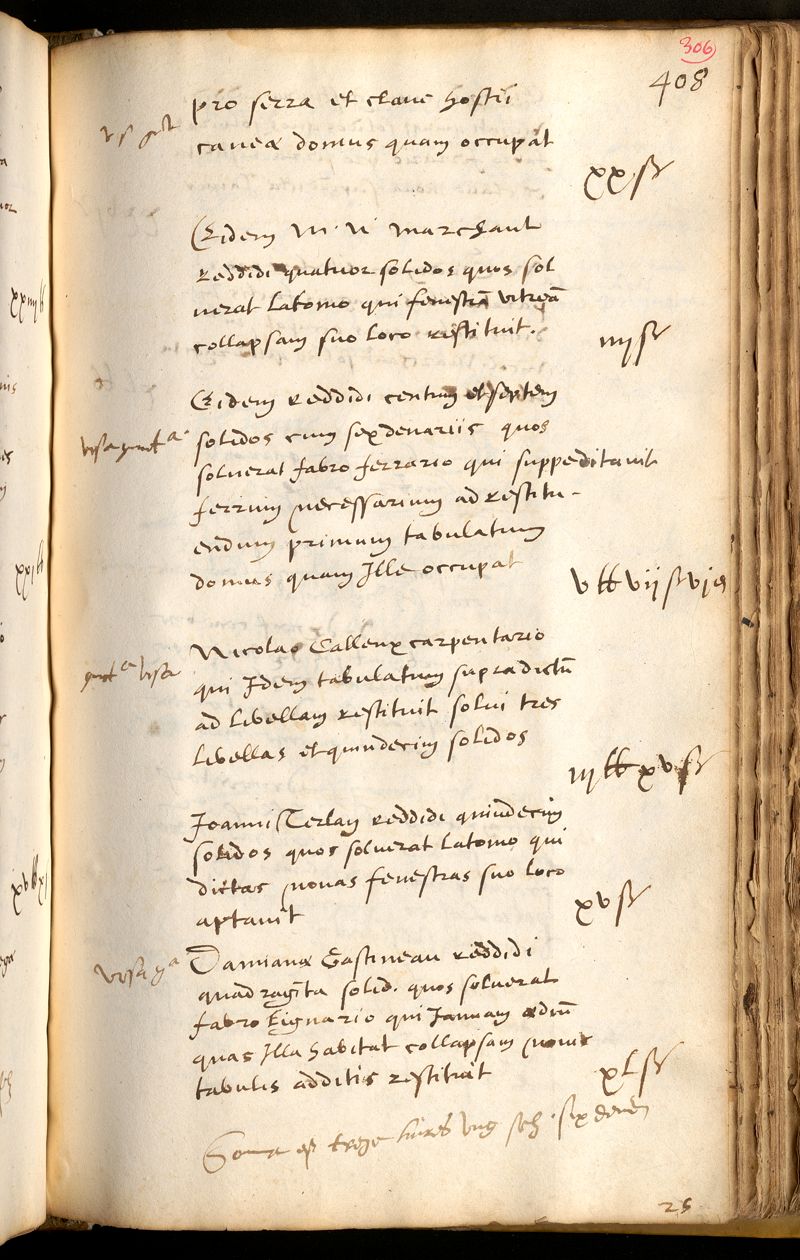 306
408
pro serra et clave hostii
caveæ domus quam occupat
xx sr
Eidem M. N. Marchant
reddidi quatuor solidos quos sol
verat latomo qui fenestrā vitreā
collapsam suo loco restituit.
iiij sr
Eidem reddidi centum et septem
visa quict a
solidos cum sex denariis quos
solverat fabro ferrario qui suppeditavit
ferrum necessarium ad restitu-
endum primum tabulatum
domus quam Ille occupat
v lt vij sr vj d
Nicolao Calleux carpentario
quict a visa
qui Idem tabulatum supradictū
ad libellam restituit solvi tres
libellas et quindecim solidos
iij lt xv sr
Joanni Terlan reddidi quindecim
solidos quos solverat latomo qui
dictas novas fenestras suo loco
aptavit
xv sr
Damianæ Gastineau reddidi
visa q a
quadragīta solid. quos solverat
fabro lignario qui Januam ædiū
quas Illa habitat collapsam novis
tabulis additis restituit
xl sr
Soma est treze livres ung sol. six den
25